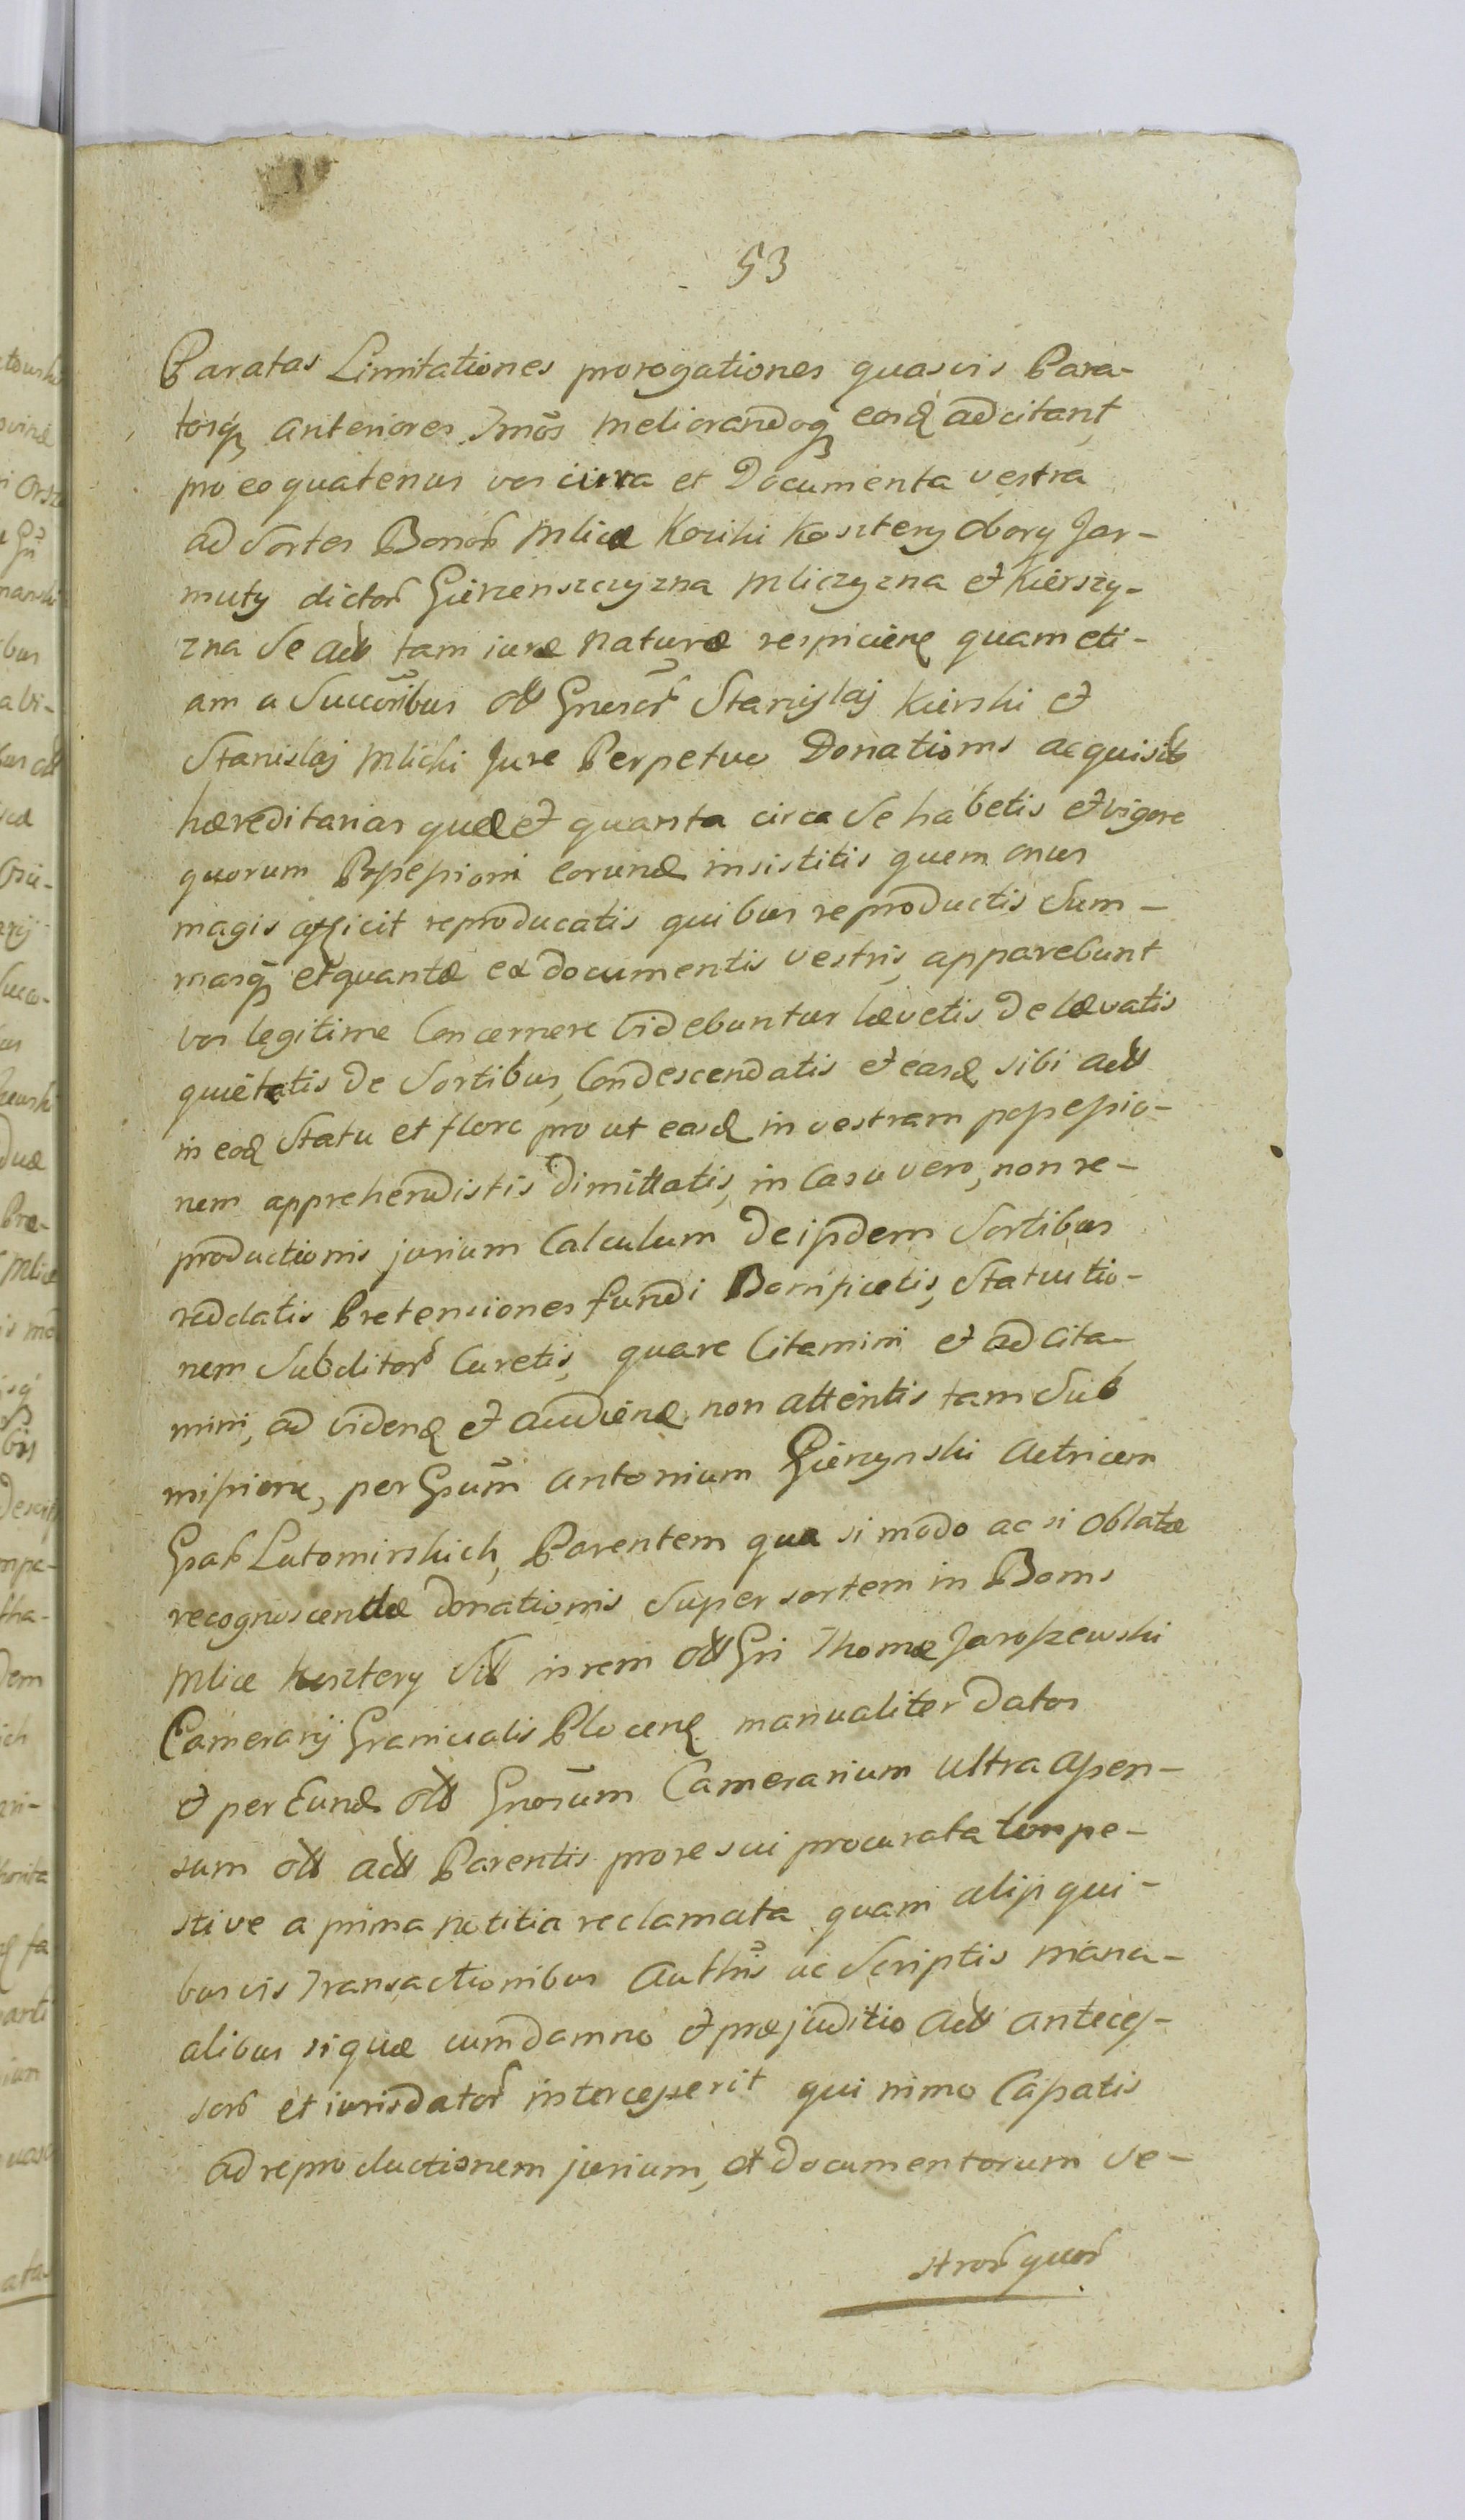 53
Paratas Limitationes prorogationes quasvis Para-
tosq́ anteriores Imõs meliorandoq́ easd adcitant
pro eo quatenus vos iura et Documenta vestra
ad Sortes Bonor Mlice Kozihi Kosztery Obory Jar-
muty dictor Gierzenszczyzna Mliczyzna et Kierszy-
zna Se act tam iure naturæ respicien quam eti-
am a Succoribus olt Gnosor Stanislaj Kierski et
Stanislaj Mlicki Jure Perpetuo Donationis acquisit
hæreditarias quæ et quanta circa Se habetis et vigore
quorum Possessioni eorund insistitis quem onus
magis afficit reproducatis quibus reproductis Sum-
masq́ et quantæ ex documentis vestris, apparebunt
vos legitime Concernere Videbuntur lævetis de lævatis
quietatis de Sortibus, Condescendatis et easd sibi act
in eod Statu et flore pro ut easd in vestram possessio-
nem apprehendistis dimittatis, in Casu vero, non re-
productionis jurium Calculum de ipsdem Sortibus
reddatis Pretensiones fundi Bonificetis, Statutio-
nem Subditor Curetis, quare Citamini et ad cita-
mini, ad Vidend et audiend, non attentis tam Sub
missione, per Gsum Antonium Gierzynski Actricem
Gsar Lutomirskich, Parentem qua si modo ac si Oblatæ
recognoscendæ donationis Super sortem in Bonis
Mlice Kosztery in rem olt Gsi Thomæ Jaroszewski
Camerarij Granicialis Plocen manualiter datos
et per Eund olt Gnosum Camerarium ultra assen-
sum olt act Parentis pro re sui procurata tempe-
stive a prima notitia reclamata quam alijs qui-
busvis Transactionibus Authis ac Scriptis manu-
alibus si quæ cum damno et præjuditio act anteces-
sor et iurisdator intercesserit qui nimo Cassatis
ad reproductionem jurium, et documentorum ve-
stror quor